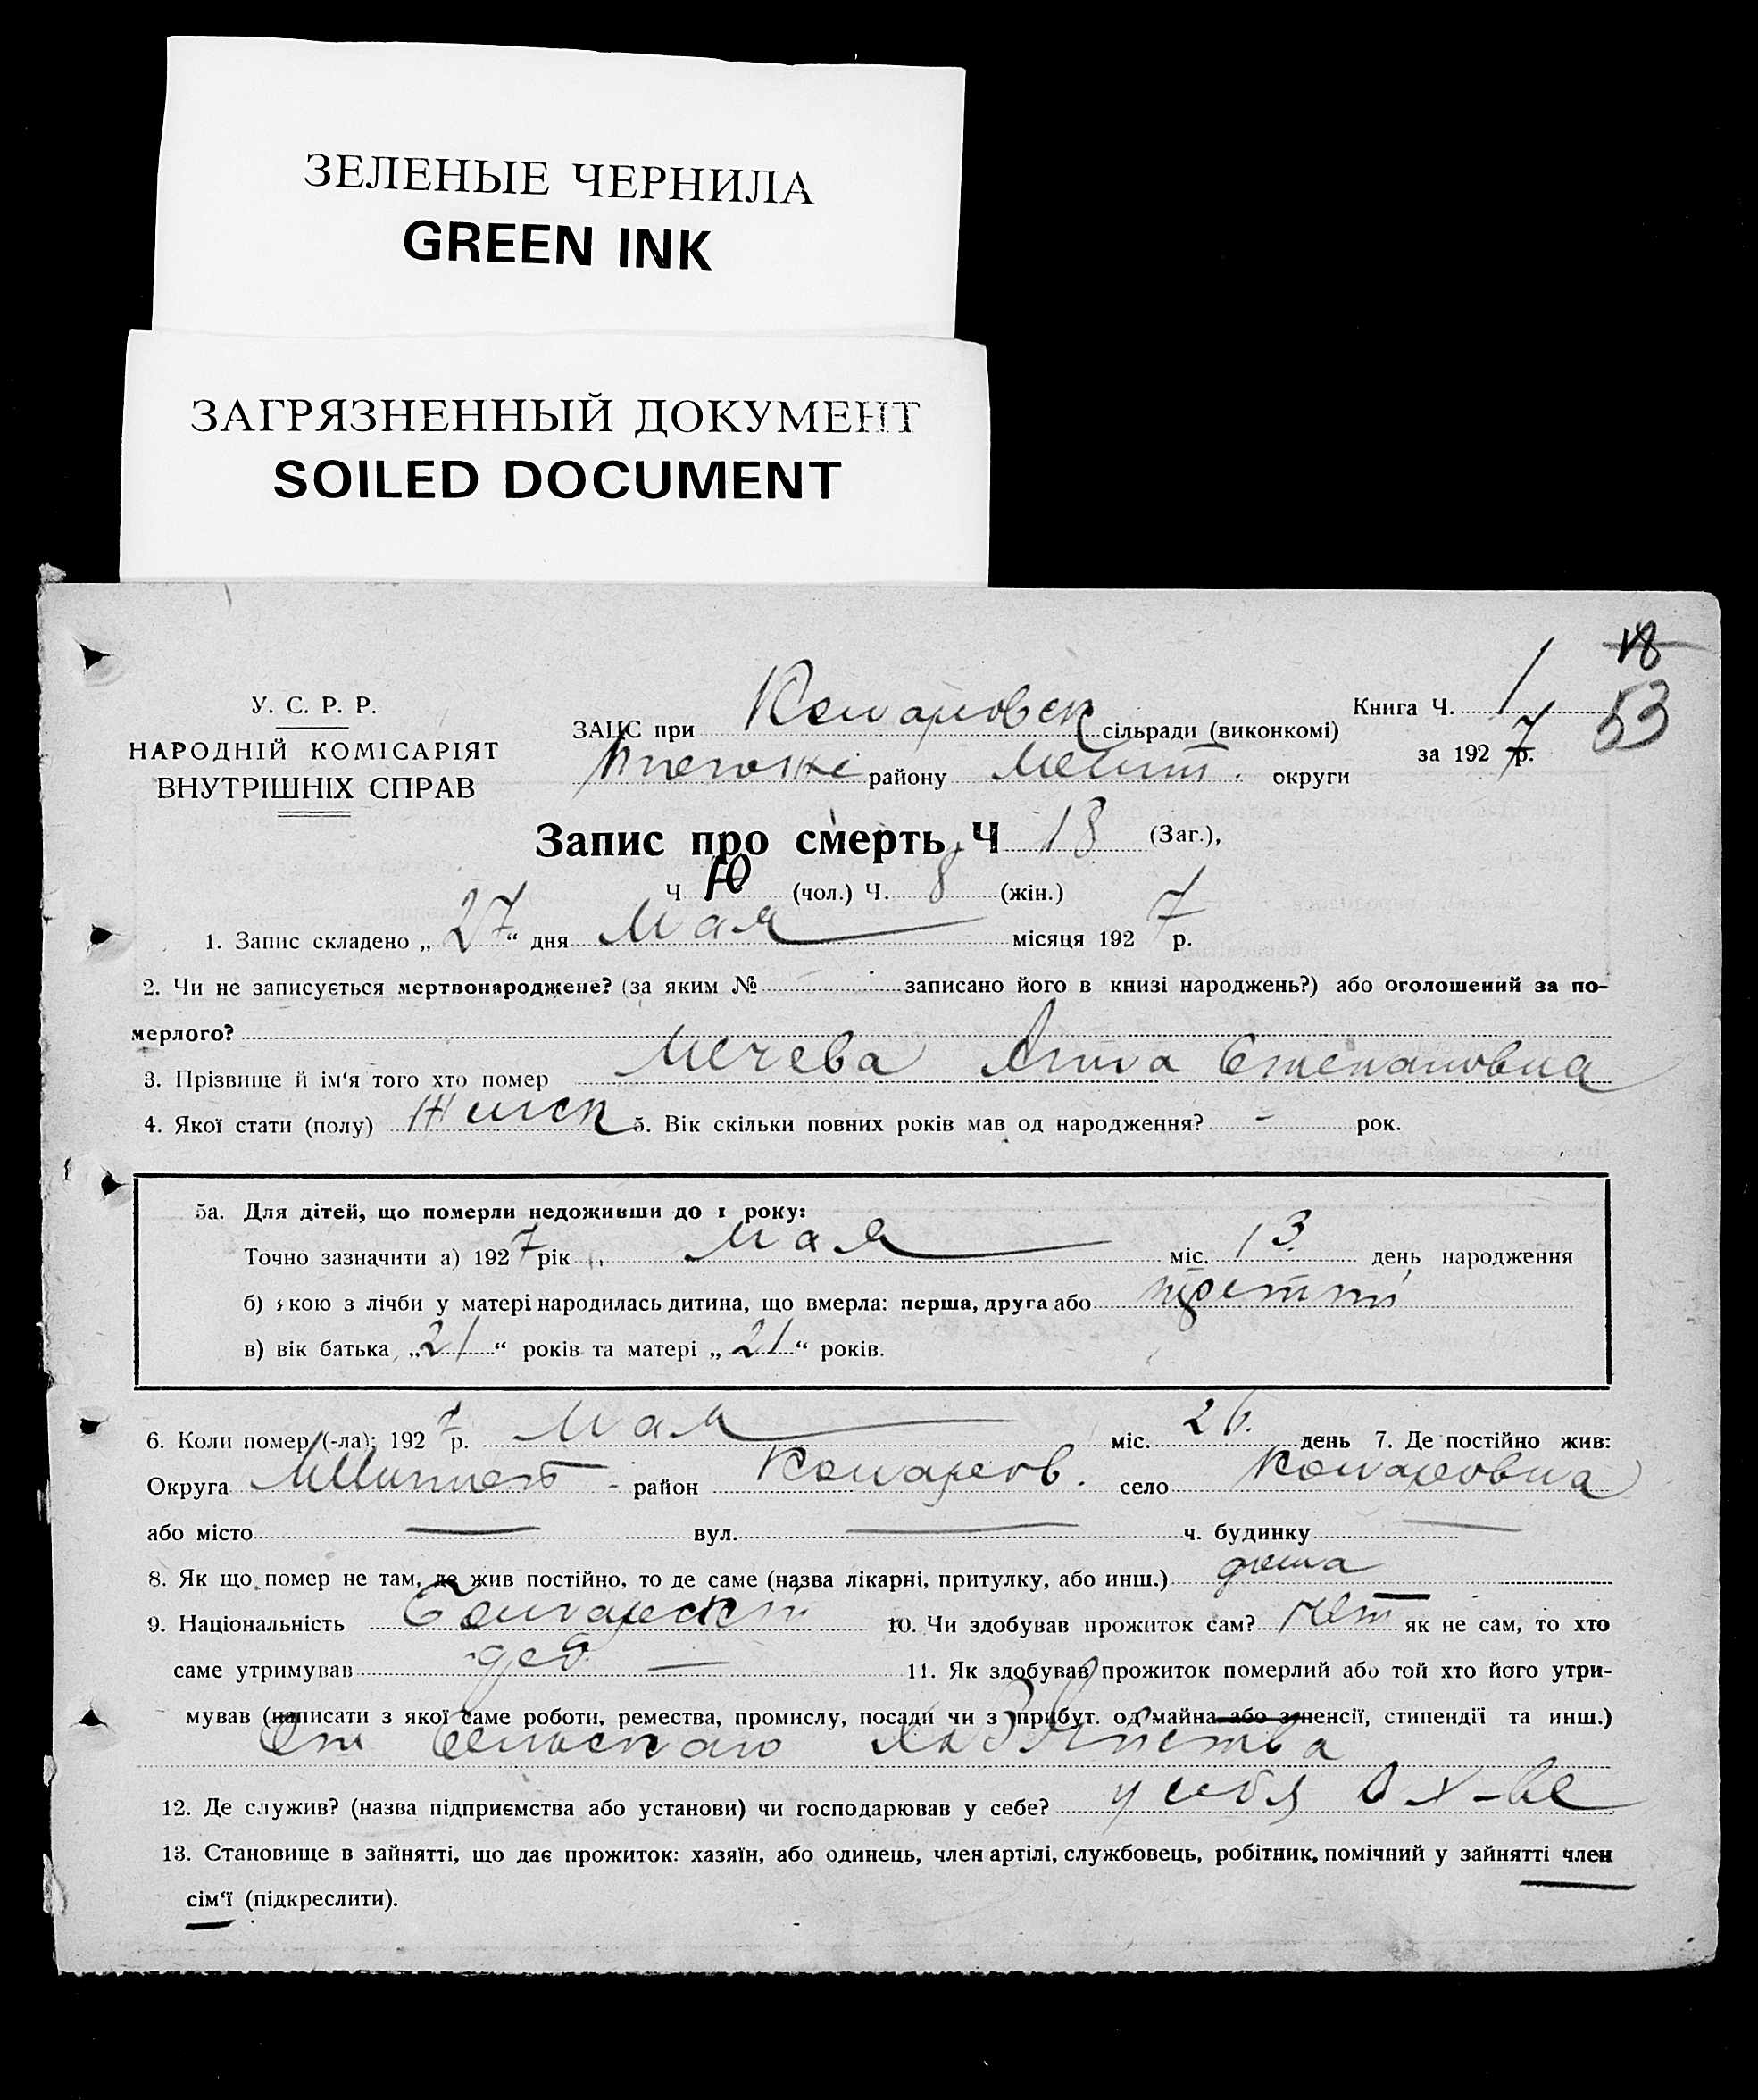 ЗЕЛЕНЫЕ ЧЕРНИЛА
GREEN INK
ЗАГРЯЗНЕННЫЙ ДОКУМЕНТ
SOILED DOCUMENT
18
53
У. С. Р. Р.
НАРОДНІЙ КОМІСАРІЯТ
ВНУТРІШНІХ СПРАВ
ЗАЦС при Комаровск сільради (виконкомі)
району Мелит. округи
Книга Ч. 1
за 1927 р.
Запис про смерть, Ч 18 (Заг.),
Ч 10 (чол.) Ч. 8 (жін.)
1. Запис складено „27“ дня Мая місяця 1927 р.
2. Чи не записується мертвонароджене? (за яким № записано його в книзі народжень?) або оголошений за по-
мерлого?
3. Прізвище й ім‘я того хто помер Мечева Анна Степановна
4. Якої стати (полу) Женск 5. Вік скільки повних років мав од народження? - рок.
5а. Для дітей, що померли недоживши до 1 року:
Точно зазначити а) 1927 рік Мая міс. 13 день народження
б) якою з лічби у матері народилась дитина, що вмерла: перша, друга або
в) вік батька „21“ років та матері „21“ років.
6. Коли помер (-ла): 1927 р. Мая міс. 26. день 7. Де постійно жив:
Округа район Комаров. село Комаровка
або місто — вул. — ч. будинку —
8. Як що помер не там, де жив постійно, то де саме (назва лікарні, притулку, або инш.) дома
9. Національність 10. Чи здобував прожиток сам? нет як не сам, то хто
саме утримував 11. Як здобував прожиток померлий або той хто його утри-
мував (написати з якої саме роботи, ремества, промислу, посади чи з прибут. од майна або з пенсії, стипендії та инш.)
От Сельскаго
12. Де служив? (назва підприємства або установи) чи господарював у себе? у себя в х-ве
13. Становище в зайнятті, що дає прожиток: хазяїн, або одинець, член артілі, службовець, робітник, помічний у зайнятті член
сім‘ї (підкреслити).